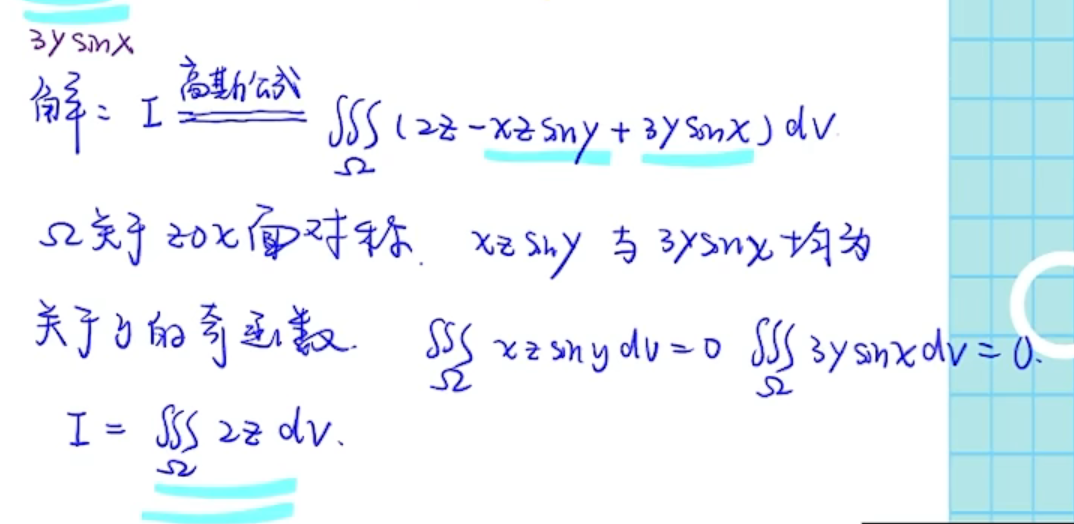 3y sinx
解: I 高斯公式 ∭Ω (2z - xz siny + 3y sinx) dv
Ω关于zox面对称. xz siny 与 3y sinx 均为
关于y的奇函数. ∭Ω xz siny dv = 0 ∭Ω 3y sinx dv = 0.
I = ∭Ω 2z dv.